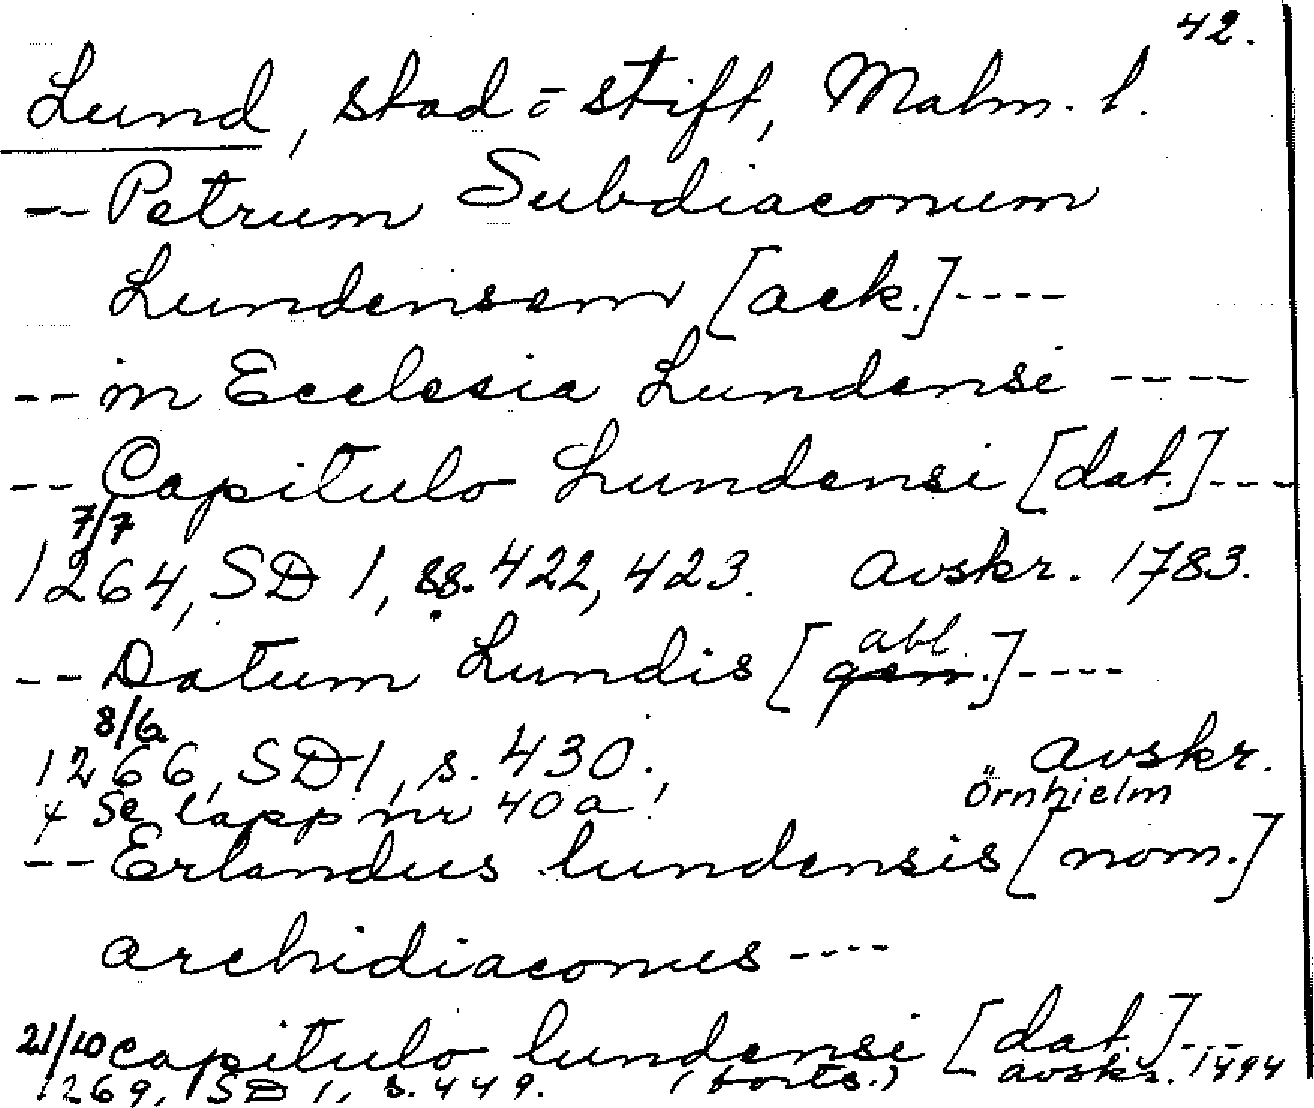 42.
Lund, stad o stift, Malm. l.
-- Petrum Subdiaconum
Lundensem [ack.] ----
-- in Ecclesia Lundensi ----
-- Capitulo Lundensi [dat.] ---
7/7
1264, SD 1, ss. 422, 423. avskr. 1783.
-- Datum Lundis [gen. abl.] ----
8/6
1266, SD 1, s. 430. avskr.
+ Se lapp nr 40a! Örnhielm
-- Erlandus lundensis [nom.]
archidiaconus ----
21/10 capitulo lundensi [dat.] ---
1269, SD 1, s. 449. (forts.) avskr. 1494